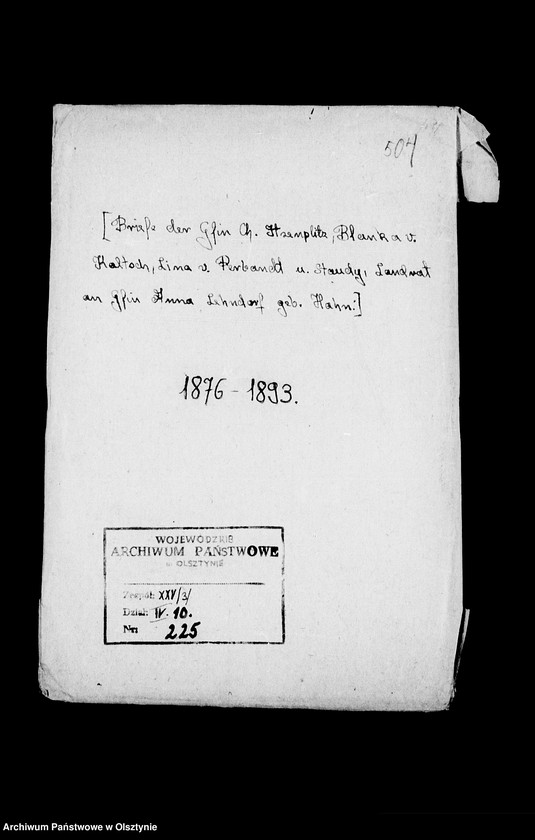 504
[Briefe der Gfin Ch. Itzenplitz, Blanka v.
Kaltsch, Lina v. Perbandt u. Staudy, Landrat
an Gfin Anna Lehndorf geb. Hahn.]
1876-1893.
WOJEWÓDZKIE
ARCHIWUM PAŃSTWOWE
w OLSZTYNIE
Zespół: XXV/3/
Dział: IV. 10.
Nr: 225
Archiwum Państwowe w Olsztynie